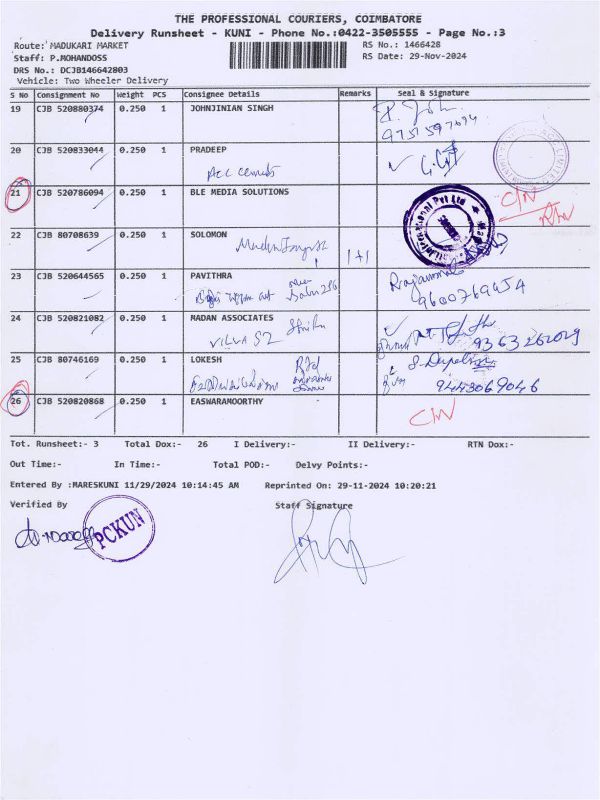 THE PROFESSIONAL COURIERS, COIMBATORE
Delivery Runsheet - KUNI - Phone No.:0422-3505555 - Page No.:3
Route: MADUKARI MARKET RS No.: 1466428
Staff: P.MOHANDOSS RS Date: 29-Nov-2024
DRS No.: DCJB146642803
Vehicle: Two Wheeler Delivery
S No Consignment No Weight PCS Consignee Details Remarks Seal & Signature
19 CJB 520880374 0.250 1 JOHNJINIAN SINGH
20 CJB 520833044 0.250 1 PRADEEP
ACC cements
21 CJB 520786094 0.250 1 BLE MEDIA SOLUTIONS C/N
22 CJB 80708639 0.250 1 SOLOMON 1+1
23 CJB 520644565 0.250 1 PAVITHRA
9600769454
24 CJB 520821082 0.250 1 MADAN ASSOCIATES
9363262029
25 CJB 80746169 0.250 1 LOKESH
9443069046
26 CJB 520820868 0.250 1 EASWARAMOORTHY C/N
Tot. Runsheet:- 3 Total Dox:- 26 I Delivery:- II Delivery:- RTN Dox:-
Out Time:- In Time:- Total POD:- Delvy Points:-
Entered By :MARESKUNI 11/29/2024 10:14:45 AM Reprinted On: 29-11-2024 10:20:21
Verified By Staff Signature
PCKUN